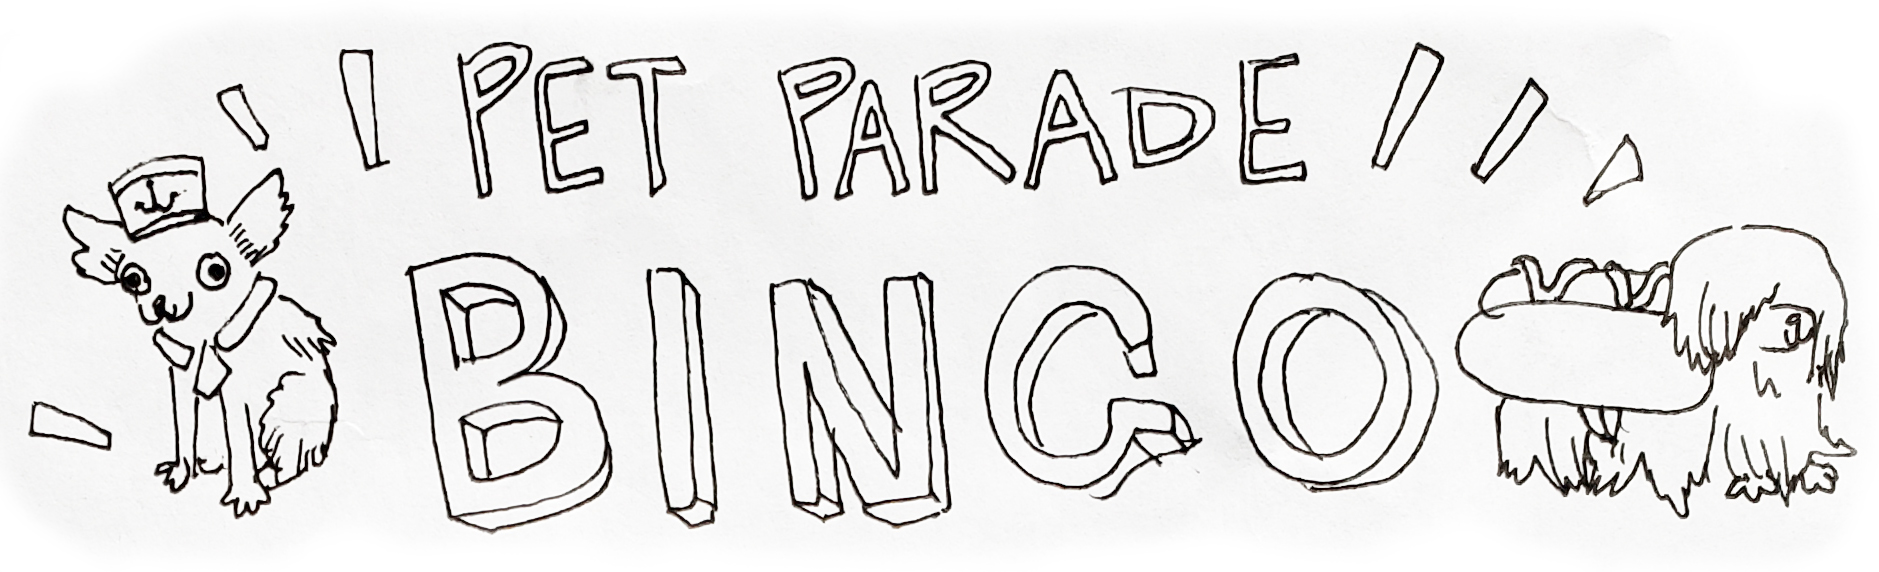 PET PARADE
BINGO